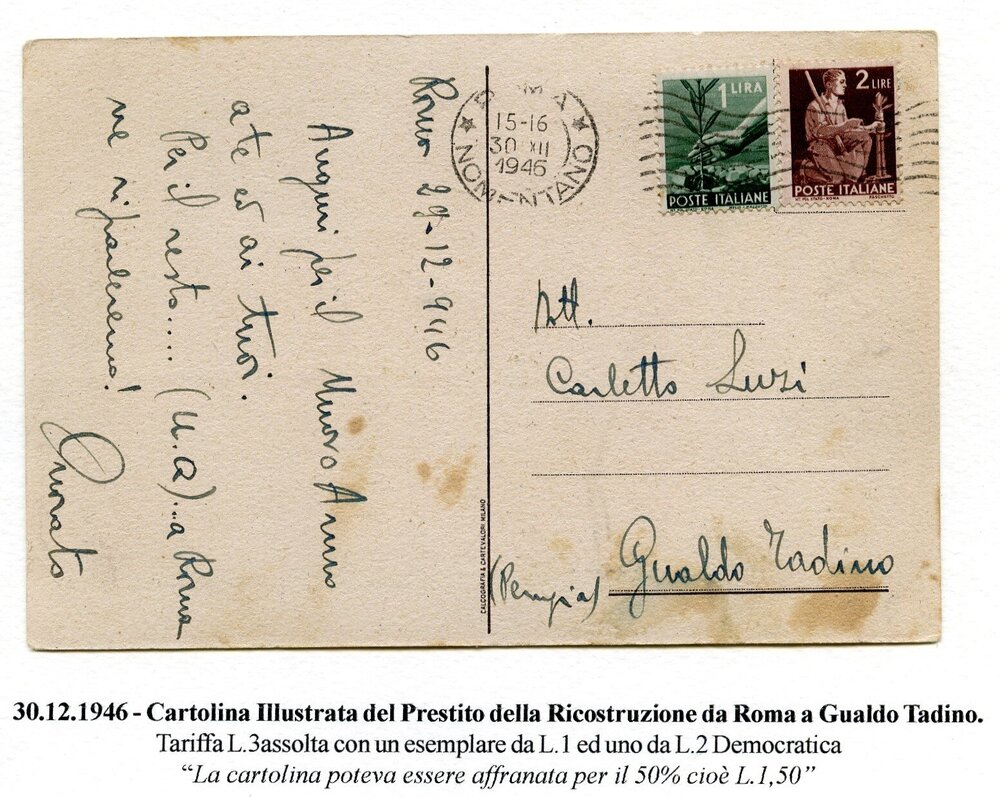 Roma 29-12-946
Auguri per il Nuovo Anno
a te ed ai tuoi.
Per il resto.... (U.Q)..a Roma
ne riparleremo!
Onorato
ROMA NOMENTANO
15-16
30 XII
1946
1 LIRA
POSTE ITALIANE
2 LIRE
POSTE ITALIANE
IST. POL. STATO - ROMA
PASCHETTO
Dott.
Carletto Luzi
Gualdo Tadino
(Perugia)
CALCOGRAFIA & CARTEVALORI MILANO
30.12.1946 - Cartolina Illustrata del Prestito della Ricostruzione da Roma a Gualdo Tadino.
Tariffa L.3assolta con un esemplare da L.1 ed uno da L.2 Democratica
“La cartolina poteva essere affranata per il 50% cioè L.1,50”